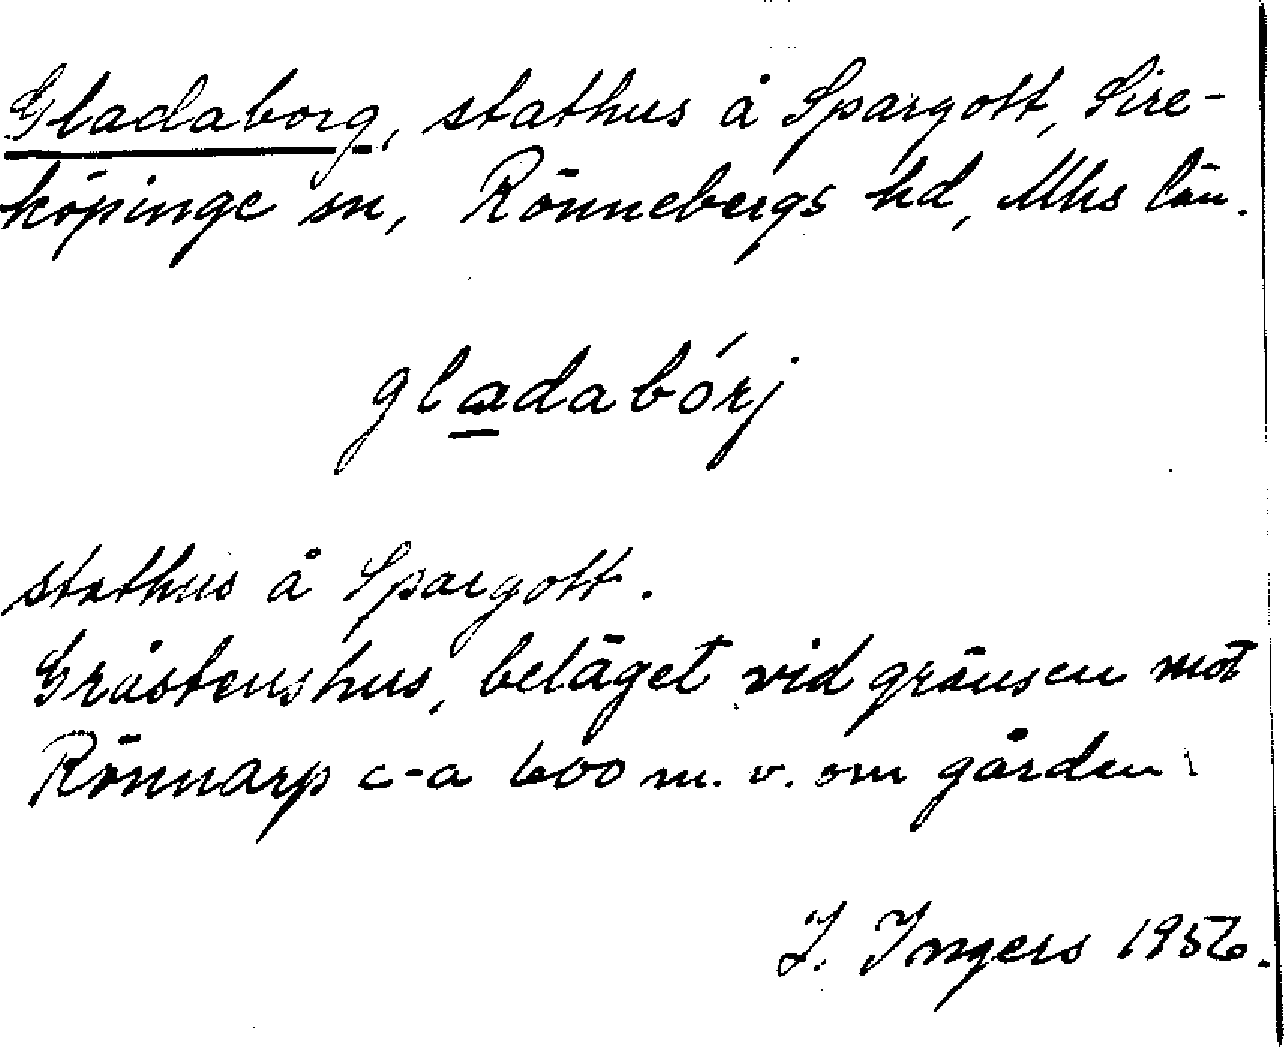 Gladaborg, stathus å Spargott, Sire-
köpinge sn, Rönnebergs hd, Mhs län.
gladabórj
stathus å Spargott.
Gråstenshus, beläget vid gränsen mot
Rönnarp c-a 600 m. v. om gården
I. Ingers 1956.